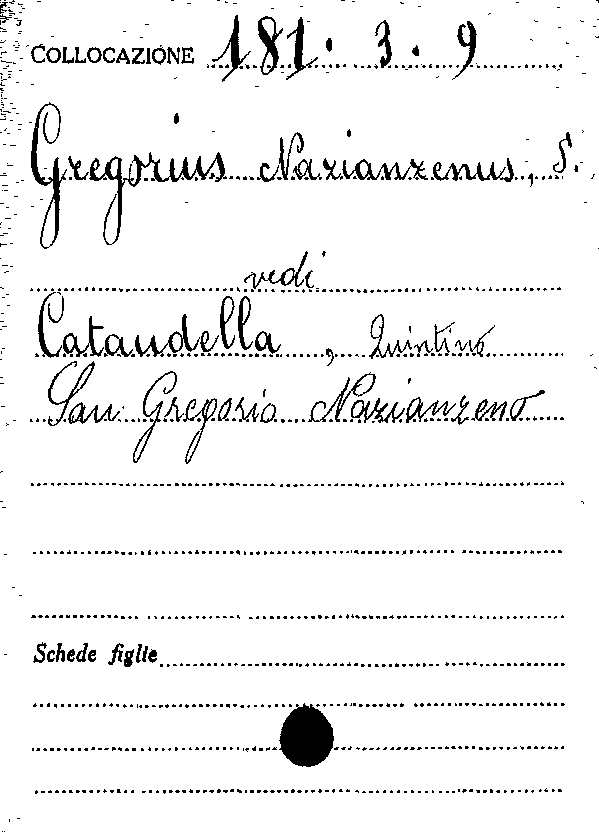 COLLOCAZIONE 181. 3. 9
Gregorius Nazianzenus, S.
vedi
Cataudella, Quintino
San Gregorio Nazianzeno
Schede figlie